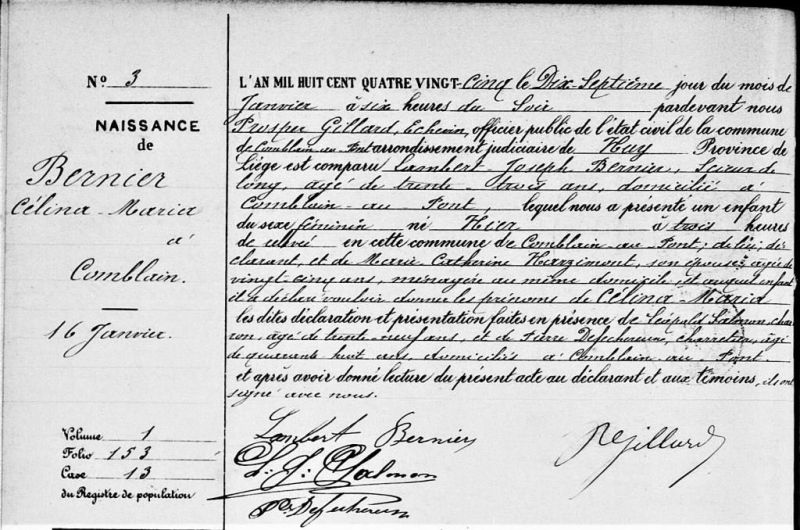 N.º 3
NAISSANCE
de
Bernier
Célina-Maria
à
Comblain.
16 Janvier.
Volume 1
Folio 153
Case 13
du Registre de population
L'AN MIL HUIT CENT QUATRE VINGT-Cinq le Dix-Septième jour du mois de
Janvier à six heures du Soir pardevant nous
Prosper Gillard, Echevin, officier public de l'état civil de la commune
de Comblain au Pont arrondissement judiciaire de Huy Province de
Liége est comparu Lambert Joseph Bernier, Scieur de
long, agé de trente-trois ans, domicilié à
Comblain-au Pont, lequel nous a présenté un enfant
du sexe féminin né Hier à trois heures
de relevé en cette commune de Comblain-au Pont; de lui, dé-
clarant, et de Marie Catherine Harzimont, son épouse, agée de
vingt-cinq ans, ménagère au même domicile et auquel enfant
il a déclaré vouloir donner les prénoms de Célina-Maria
les dites déclaration et présentation faites en présence de Léopold Salmon, char-
ron, agé de trente-neuf ans, et de Pierre Defechereux, charretier, agé
de quarante huit ans, domiciliés à Comblain au Pont
et après avoir donné lecture du présent acte au déclarant et aux témoins, ils ont
signé avec nous.
Lambert Bernier
L. J. Salmon
Pre Defechereux
PGillard